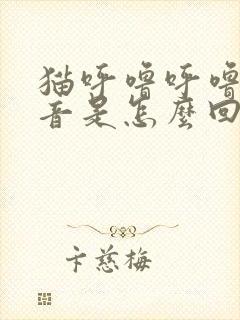 猫呼噜呼噜
音是怎麼回
卞慈梅